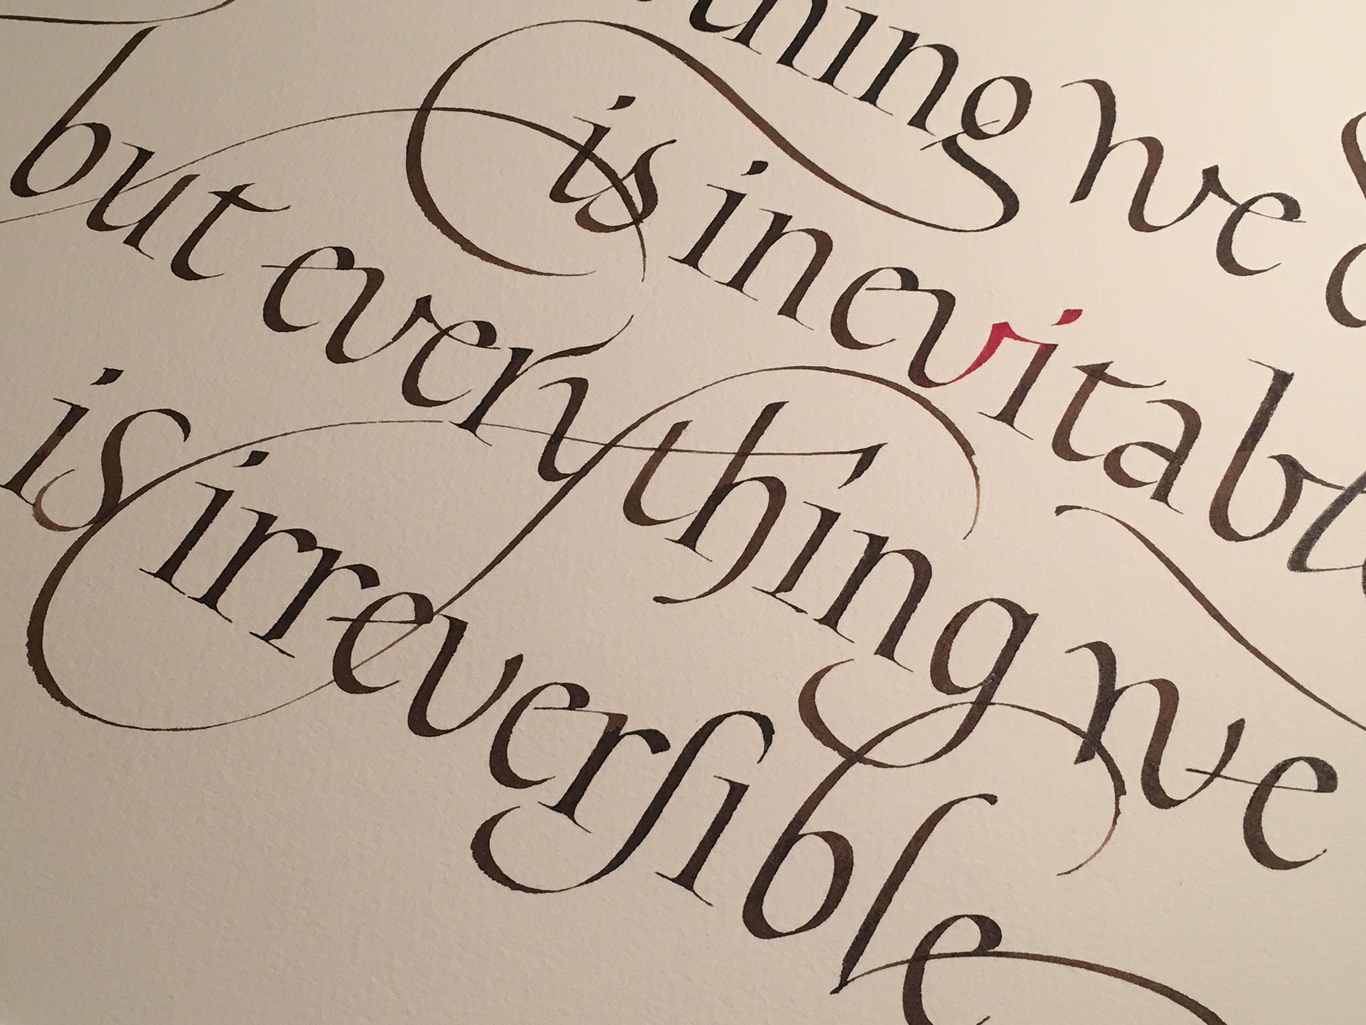 thing we
is inevitable
but everything we
is irreverſible